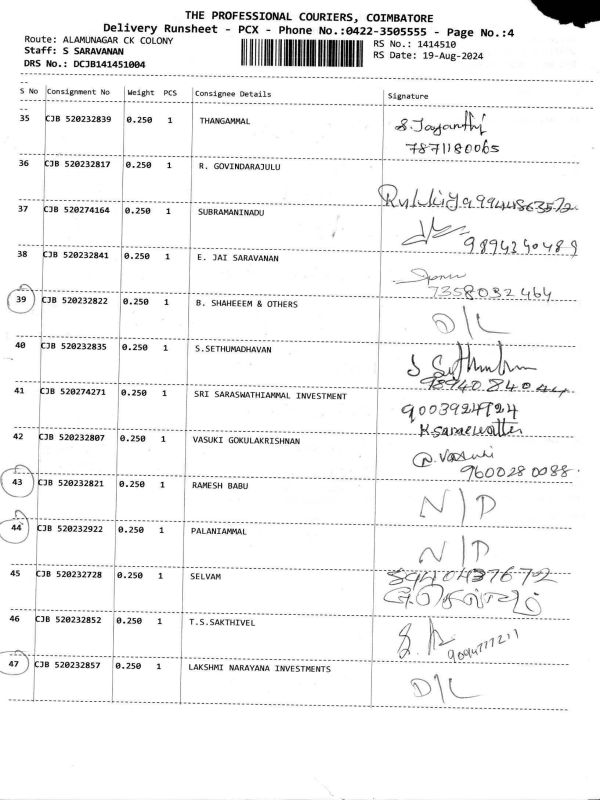 THE PROFESSIONAL COURIERS, COIMBATORE
Delivery Runsheet - PCX - Phone No.:0422-3505555 - Page No.:4
Route: ALAMUNAGAR CK COLONY
RS No.: 1414510
Staff: S SARAVANAN
RS Date: 19-Aug-2024
DRS No.: DCJB141451004
S No Consignment No Weight PCS Consignee Details Signature
35 CJB 520232839 0.250 1 THANGAMMAL S. Jayanthi
7871180065
36 CJB 520232817 0.250 1 R. GOVINDARAJULU
9944863572
37 CJB 520274164 0.250 1 SUBRAMANINADU
9894340489
38 CJB 520232841 0.250 1 E. JAI SARAVANAN
7358032464
39 CJB 520232822 0.250 1 B. SHAHEEEM & OTHERS
D/L
40 CJB 520232835 0.250 1 S.SETHUMADHAVAN
9894084044
41 CJB 520274271 0.250 1 SRI SARASWATHIAMMAL INVESTMENT
9003924924
42 CJB 520232807 0.250 1 VASUKI GOKULAKRISHNAN
Vasuki
9600280088
43 CJB 520232821 0.250 1 RAMESH BABU
N/D
44 CJB 520232922 0.250 1 PALANIAMMAL
N/D
45 CJB 520232728 0.250 1 SELVAM
46 CJB 520232852 0.250 1 T.S.SAKTHIVEL
9094777211
47 CJB 520232857 0.250 1 LAKSHMI NARAYANA INVESTMENTS
D/L